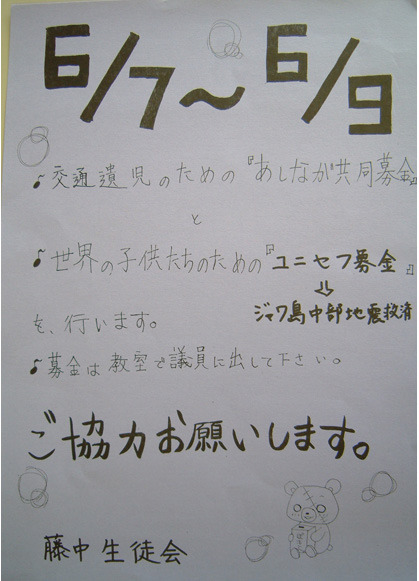 6/7〜6/9
♪交通遺児のための『あしなが共同募金』
と
♪世界の子供たちのための『ユニセフ募金』
⇩
ジャワ島中部地震救済
を、行います。
♪募金は教室で議員に出して下さい。
ご協力お願いします。
藤中生徒会